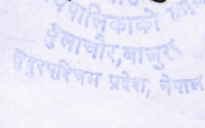 पालिकाको
डुलाचौर, बाजुरा
सुदूरपश्चिम प्रदेश, नेपाल